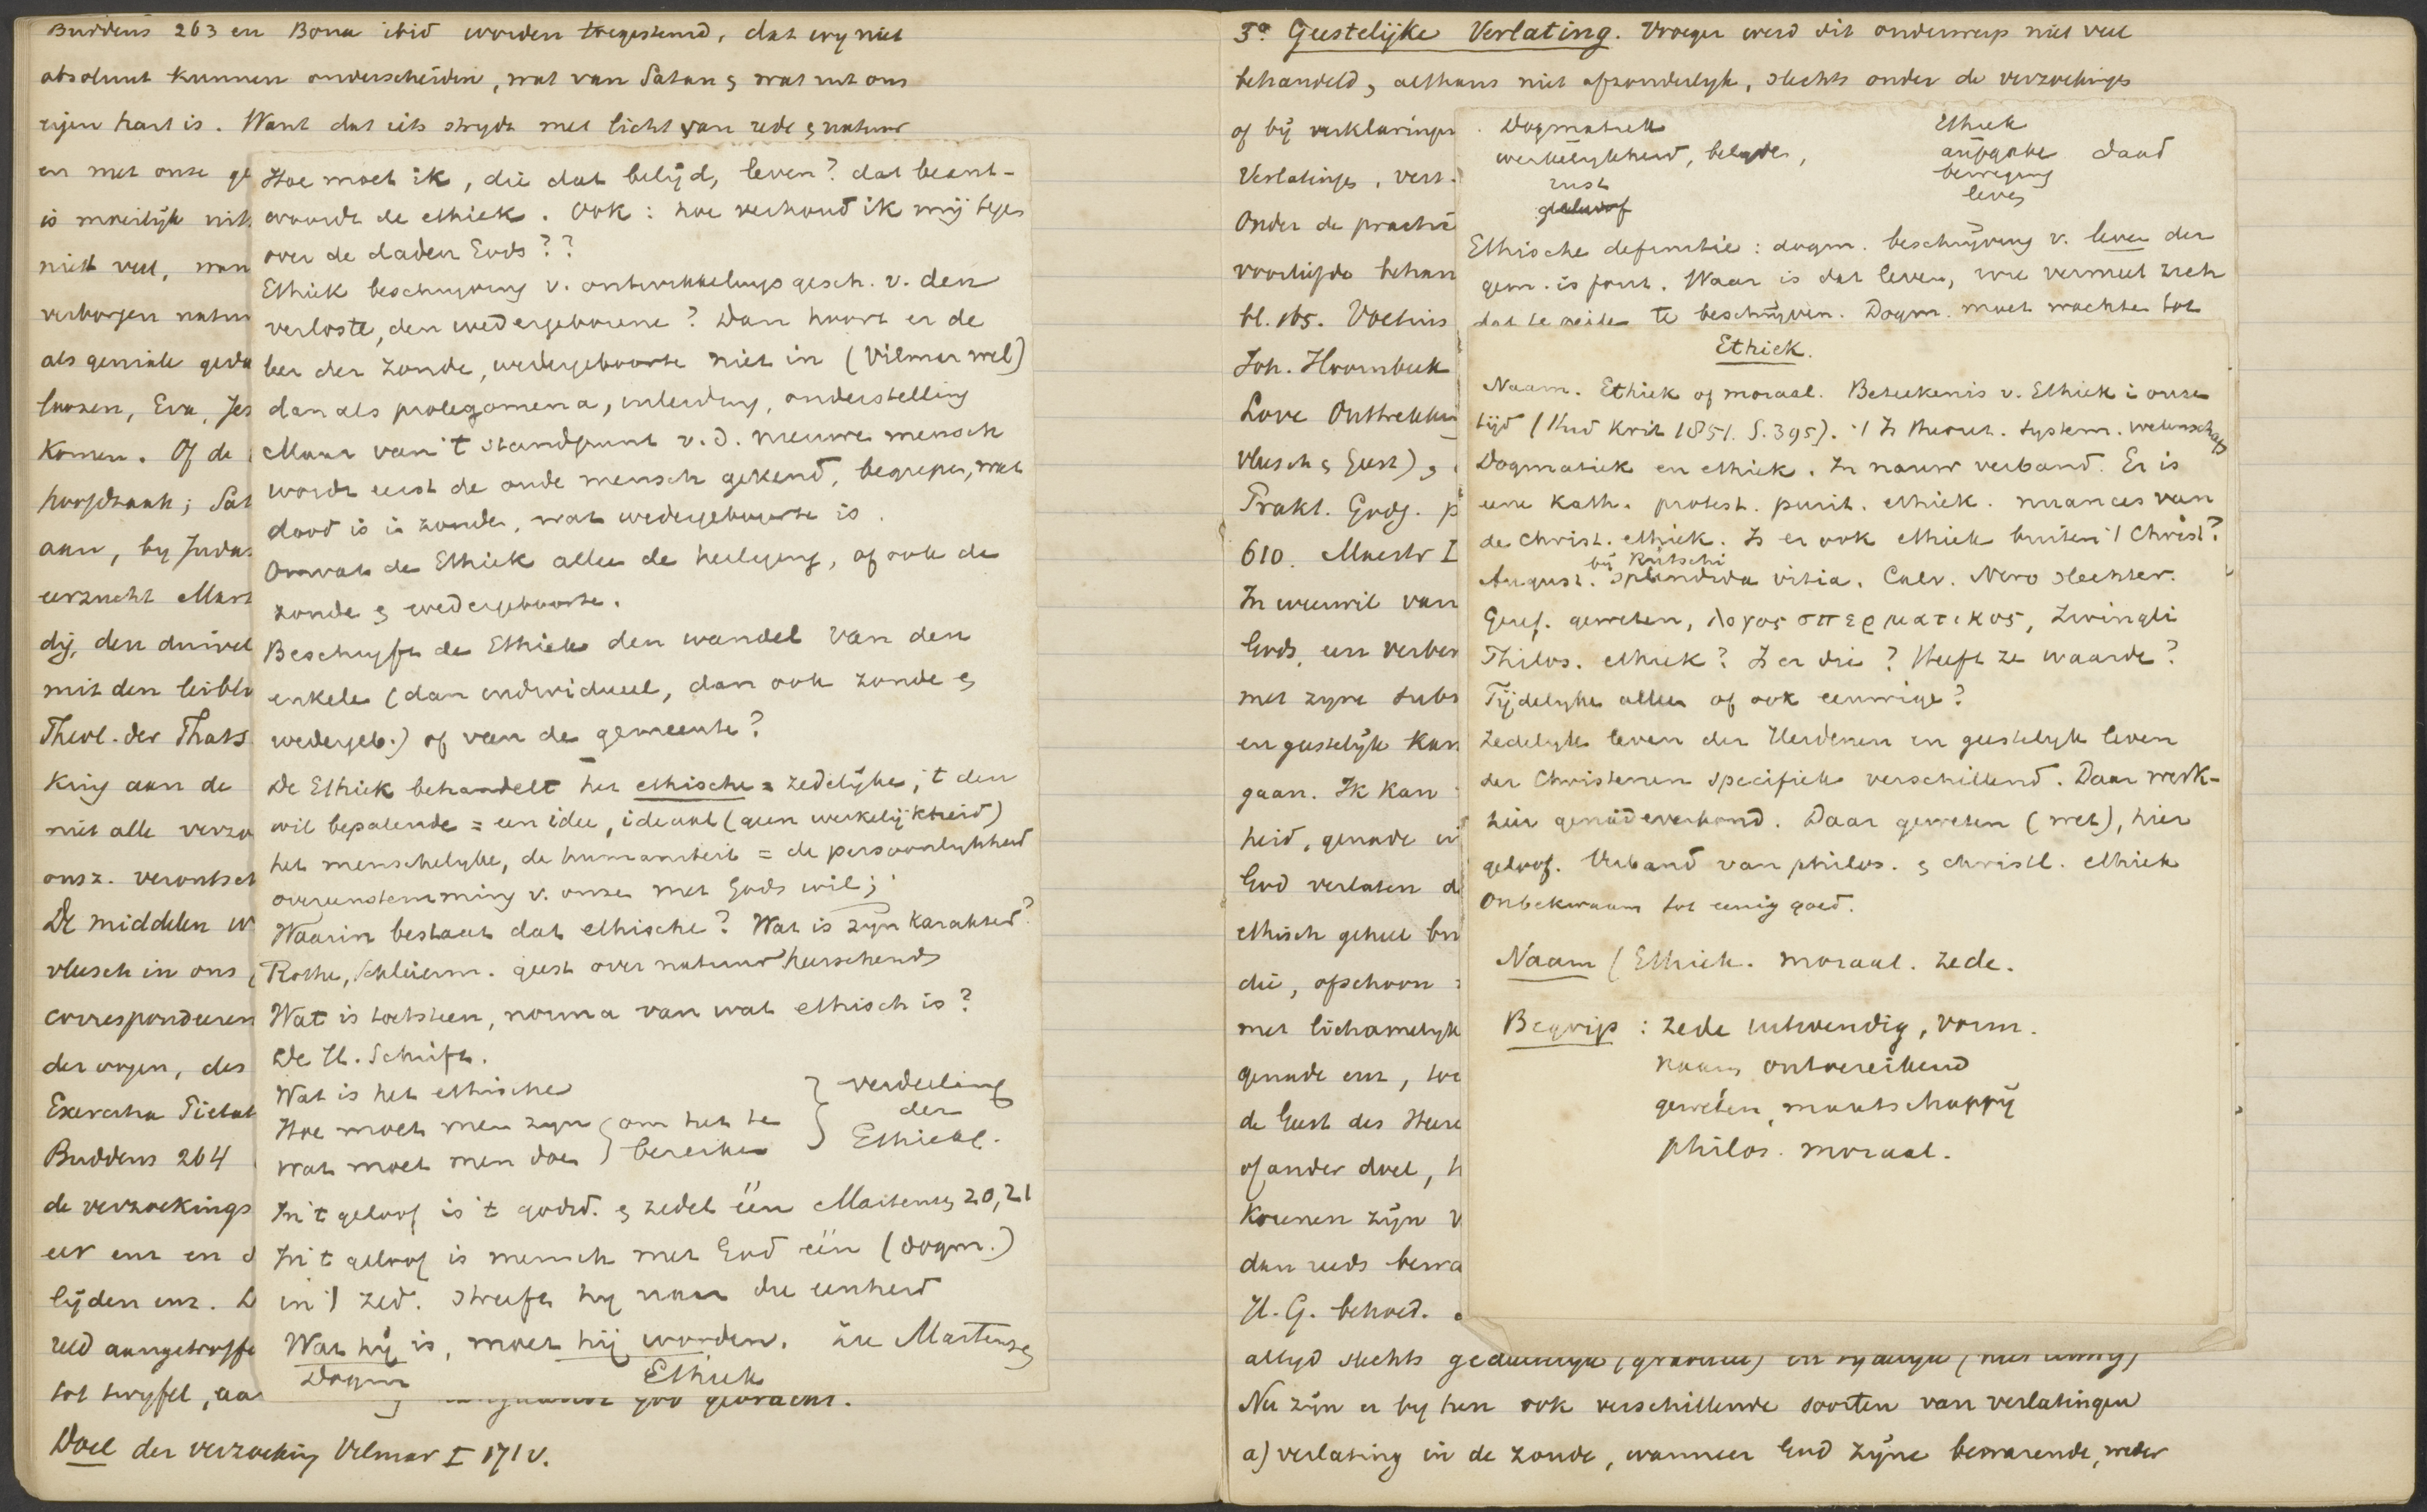 Buddeus 263 en Bona ibid worden toegestemd, dat wy niet
absoluut kunnen onderscheiden, wat van Satan & wat uit ons
eigen hart is. Want dat iets strydt met licht van rede & natuur
en met onze ge
is moeilijk uit
niet veel, wan
verborgen natuu
als geniale geda
loozen, Eva, Jes
komen. Of de
hoofdzaak; Sat
aan, by Judas
eerzucht Mart
dij, den duivel
mit den leibli
Theol. der Thats
king aan de
niet alle verzo
onsz. verontsch
De middelen w
vleesch in ons
correspondeeren
der oogen, des
Exercitia Pietat
Buddeus 264
de verzoekings
eer enz en d
lijden enz. D
reld aangetroffe
tot twyfel, aa
God gebracht.
Doel der verzoeking Vilmar I 171 v.
Hoe moet ik, die dat belijd, leven? dat beant-
woordt de ethiek. Ook: hoe verhoud ik mij tegen
over de daden Gods??
Ethiek beschryving v. ontwikkelingsgesch. v. den
verloste, den wedergeborene? Dan hoort er de
leer der zonde, wedergeboorte niet in (Vilmar wel)
dan als prolegomena, inleiding, onderstelling
Maar van 't standpunt v.d. nieuwe mensch
wordt eerst de oude mensch gekend, begrepen, wat
dood is in zonde, wat wedergeboorte is.
Omvat de Ethiek alleen de heiliging, of ook de
zonde & wedergeboorte.
Beschryft de Ethiek den wandel van den
enkelen (dan individueel, dan ook zonde &
wedergeb.) of van de gemeente?
De Ethiek behandelt het ethische = zedelijke; 't den
wil bepalende = een idee, ideaal (geen werkelijkheid)
het menschelyke, de humaniteit = de persoonlykheid
overeenstemming v. onzen met Gods wil;
Waarin bestaat dat ethische? Wat is zijn karakter?
Rothe, Schleierm. geest over natuur heerschende
Wat is toetssteen, norma van wat ethisch is?
De H. Schrift.
Wat is het ethische
Hoe moet men zyn
wat moet men doen
om het te
bereiken
verdeeling
der
Ethiek.
In 't geloof is 't godsd. & zedel één Martensen 20,21
In 't geloof is mensch met God één (dogm.)
in 't zed. streeft hy naar die eenheid
Wat hij is, moet hij worden. zie Martensen
Dogm Ethiek
3° Geestelijke Verlating. Vroeger werd dit onderwerp niet veel
behandeld, althans niet afzonderlyk, slechts onder de verzoekingen
of bij verklaringen
Verlatinge, vert.
Onder de practi
voorlijdo behan
bl. 165. Voetius
Joh. Hoornbeek
Love Onttrekkin
vleesch & Geest),
Prakt. Godg. p
610. Maestr I
In weerwil van
Gods, een verber
met zyne subs
en geestelijk kan
gaan. Ik kan
heid, genade
God verlaten d
ethisch geheel bu
die, ofschoon
met lichamelyk
genade enz, toe
de Geest des Heere
of ander doel, h
koenen zijn v
dan reeds berra
H.G. behoed.
altyd slechts
Nu zijn er by hen ook verschillende soorten van verlatingen
a) verlating in de zonde, wanneer God zijne bewarende, weder
Dogmatiek
werkelykheid, belyden,
rust
geloof
Ethiek
aufgabe daad
beweging
leven
Ethische definitie: dogm. beschrijving v. leven der
gem. is fout. Waar is dat leven, wie vermeet zich
te beschrijven. Dogm. moet wachten tot
Ethiek.
Naam. Ethiek of moraal. Beteekenis v. Ethiek in onze
tijd (Stud Krit 1851. S.395). 't Is theoret. system. wetenschap
Dogmatiek en ethiek. In nauw verband. Er is
eene Kath. protest. purit. ethiek. nuances van
de christ. ethiek. Is er ook ethiek buiten 't Christ?
bij Rütschi
August. splendida vitia. Calv. Nero slechter.
Geref. geweten, λογος σπερματικος, Zwingli
Philos. ethiek? Is er die? Heeft ze waarde?
Tijdelyke alleen of ook eeuwige?
Zedelyk leven der Heidenen en geestelyk leven
der Christenen specifiek verschillend. Daar werk-
hier genadeverbond. Daar geweten (wet), hier
geloof. Verband van philos. & christl. ethiek
Onbekwaam tot eenig goed.
Naam (Ethiek. moraal. zede.
Begrip: zede uitwendig, vorm.
naam ontoereikend
geweten, maatschappij
philos. moraal.